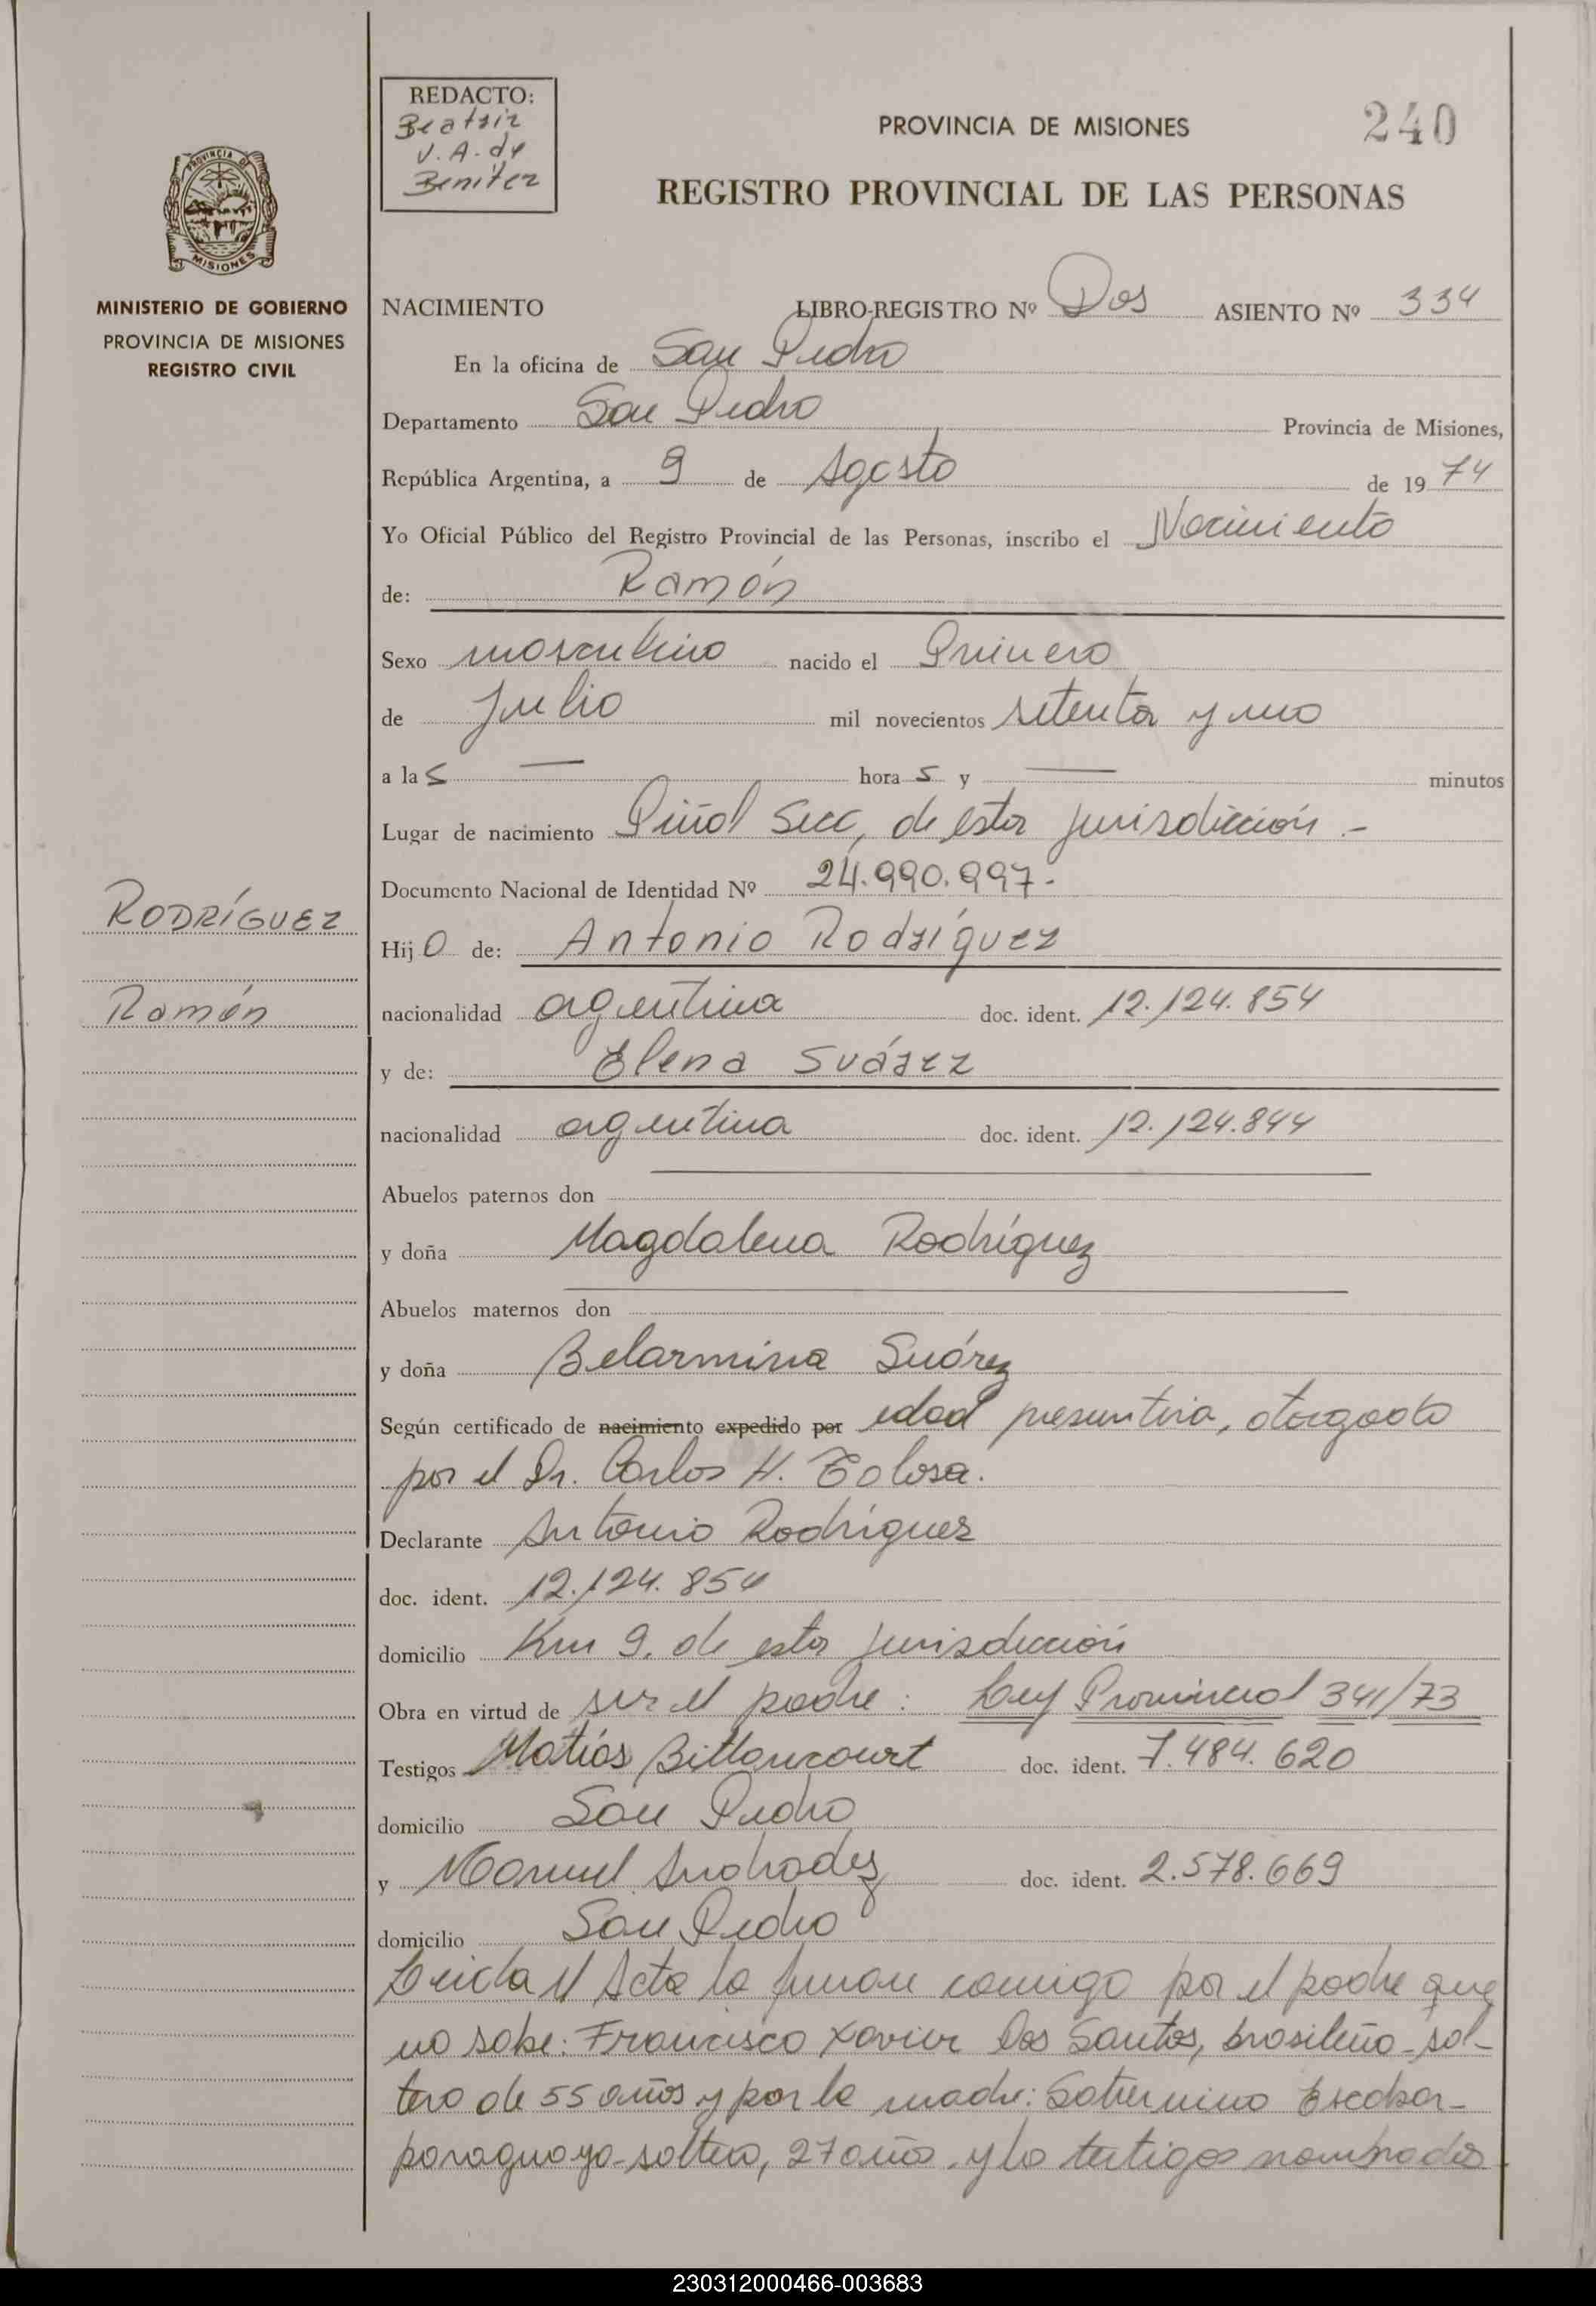 REDACTO:
Beatriz
V. A. de
Benitez
PROVINCIA DE MISIONES
240
REGISTRO PROVINCIAL DE LAS PERSONAS
PROVINCIA DE
MISIONES
MINISTERIO DE GOBIERNO
PROVINCIA DE MISIONES
REGISTRO CIVIL
NACIMIENTO LIBRO-REGISTRO Nº Dos ASIENTO Nº 334
En la oficina de San Pedro
Departamento San Pedro Provincia de Misiones,
República Argentina, a 9 de Agosto de 1974
Yo Oficial Público del Registro Provincial de las Personas, inscribo el Nacimiento
de: Ramón
Sexo masculino nacido el Primero
de Julio mil novecientos setenta y uno
a la s — hora s y — minutos
Lugar de nacimiento Piñal Seco, de esta jurisdicción.-
Documento Nacional de Identidad Nº 24.990.997.-
RODRÍGUEZ
Hijo de: Antonio Rodríguez
Ramón
nacionalidad argentina doc. ident. 12.124.854
y de: Elena Suárez
nacionalidad argentina doc. ident. 12.124.844
Abuelos paternos don
y doña Magdalena Rodríguez
Abuelos maternos don
y doña Belarmina Suárez
Según certificado de nacimiento expedido por edad presuntiva, otorgado
por el Dr. Carlos H. Tolosa.
Declarante Antonio Rodríguez
doc. ident. 12.124.854
domicilio Km 9, de esta jurisdicción
Obra en virtud de ser el padre: Ley Provincial 341/73
Testigos Matías Bittancourt doc. ident. 7.484.620
domicilio San Pedro
y Manuel Andrades doc. ident. 2.578.669
domicilio San Pedro
Leída el Acta la firman conmigo por el padre que
no sabe: Francisco Xavier Dos Santos, brasileño-sol-
tero de 55 años y por la madre: Saturnino Escobar-
paraguayo-soltero, 27 años, y lo testigos nombrados
230312000466-003683